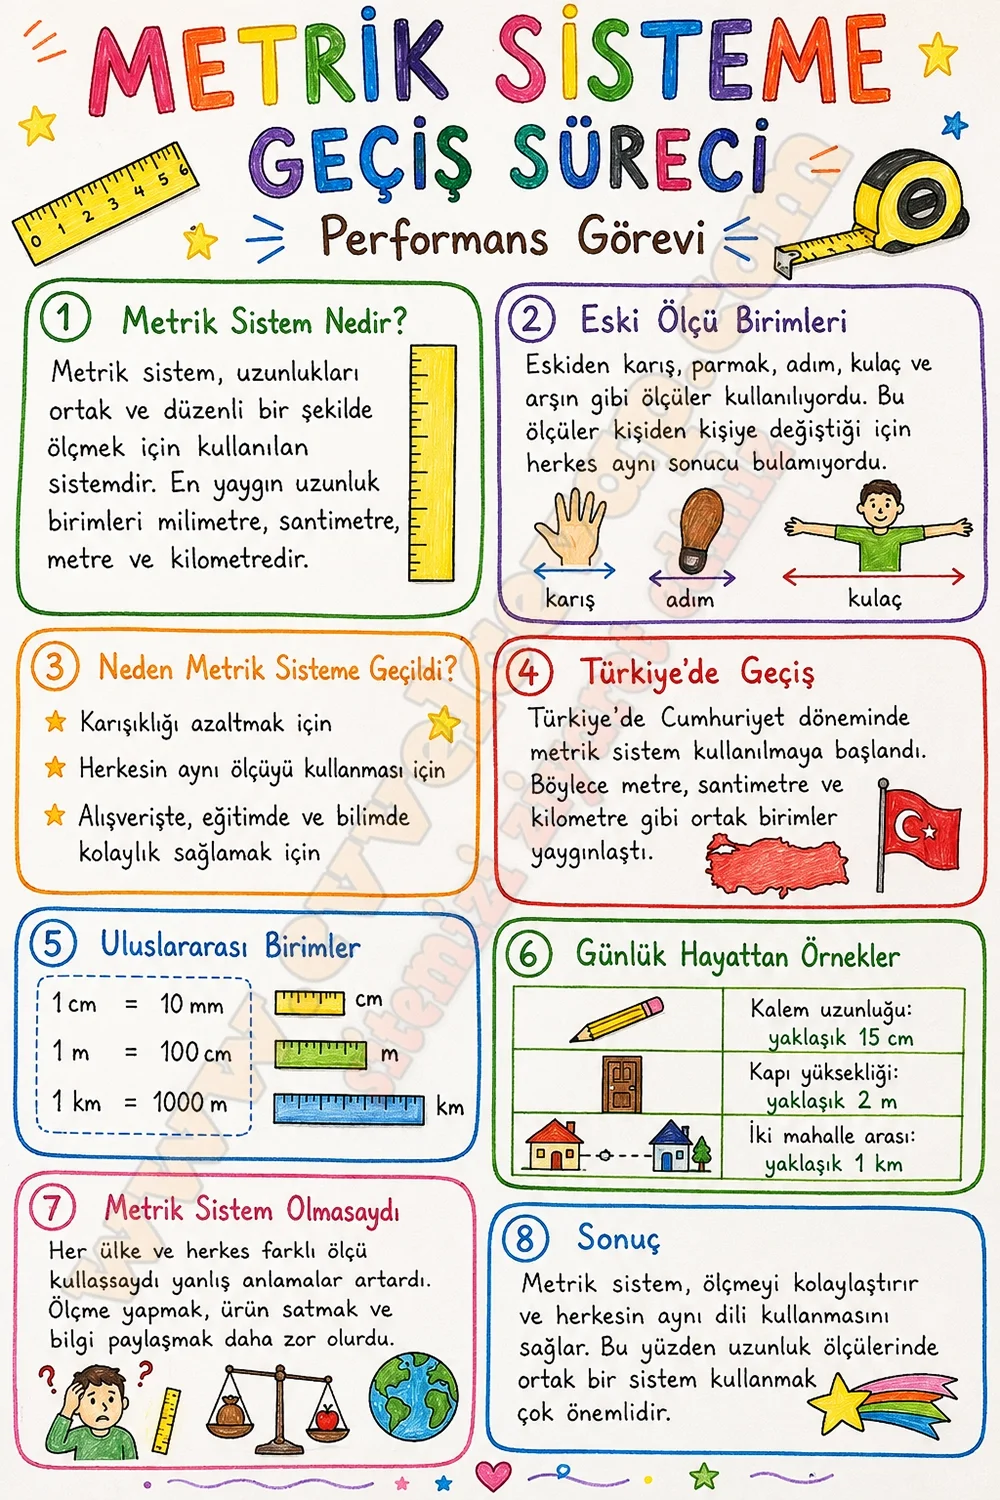 METRİK SİSTEME
GEÇİŞ SÜRECİ
Performans Görevi
0 1 2 3 4 5 6
1 Metrik Sistem Nedir?
Metrik sistem, uzunlukları
ortak ve düzenli bir şekilde
ölçmek için kullanılan
sistemdir. En yaygın uzunluk
birimleri milimetre, santimetre,
metre ve kilometredir.
2 Eski Ölçü Birimleri
Eskiden karış, parmak, adım, kulaç ve
arşın gibi ölçüler kullanılıyordu. Bu
ölçüler kişiden kişiye değiştiği için
herkes aynı sonucu bulamıyordu.
karış adım kulaç
3 Neden Metrik Sisteme Geçildi?
Karışıklığı azaltmak için
Herkesin aynı ölçüyü kullanması için
Alışverişte, eğitimde ve bilimde
kolaylık sağlamak için
4 Türkiye'de Geçiş
Türkiye'de Cumhuriyet döneminde
metrik sistem kullanılmaya başlandı.
Böylece metre, santimetre ve
kilometre gibi ortak birimler
yaygınlaştı.
5 Uluslararası Birimler
1 cm = 10 mm cm
1 m = 100 cm m
1 km = 1000 m km
6 Günlük Hayattan Örnekler
Kalem uzunluğu:
yaklaşık 15 cm
Kapı yüksekliği:
yaklaşık 2 m
İki mahalle arası:
yaklaşık 1 km
7 Metrik Sistem Olmasaydı
Her ülke ve herkes farklı ölçü
kullaşsaydı yanlış anlamalar artardı.
Ölçme yapmak, ürün satmak ve
bilgi paylaşmak daha zor olurdu.
? ?
8 Sonuç
Metrik sistem, ölçmeyi kolaylaştırır
ve herkesin aynı dili kullanmasını
sağlar. Bu yüzden uzunluk ölçülerinde
ortak bir sistem kullanmak
çok önemlidir.